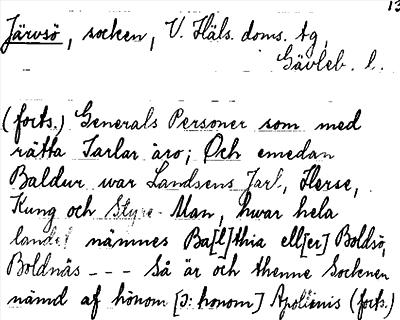 13
Järvsö, socken, V. Häls. doms. tg,
Gävleb. l.
(forts.) Generals Personer som med
rätta Jarlar äro; Och emedan
Baldur war Landsens Jarl, Herse,
Kung och Styre- Man, hwar hela
landet nämnes Ba[l]thia ell[er] Boldsö,
Boldnäs - - - Så är och thenne Socknen
nämd af hönom [ɔ: honom] Apollinis (forts.)